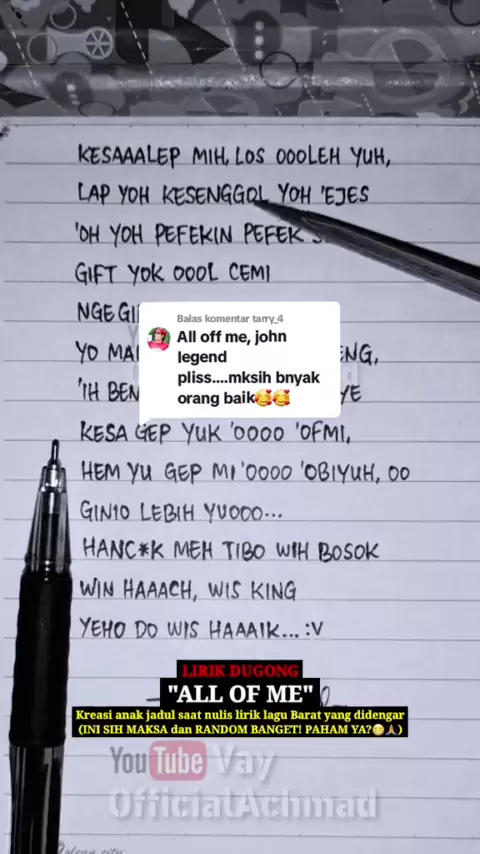 KESAAALEP MIH, LOS OOOLEH YUH,
LAP YOH KESENGGOL YOH 'EJES
'OH YOH PEFEKIN PEFEK
GIFT YOK OOOL CEMI
Balas komentar tarry_4
All off me, john
legend
pliss....mksih bnyak
orang baik🥰🥰
KESA GEP YUK 'OOOO 'OFMI,
HEM YU GEP MI 'OOOO 'OBIYUH, OO
GINIO LEBIH YUOOO...
HANC*K MEH TIBO WIH BOSOK
WIN HAAACH, WIS KING
YEHO DO WIS HAAAIK... :V
LIRIK DUGONG
"ALL OF ME"
Kreasi anak jadul saat nulis lirik lagu Barat yang didengar
(INI SIH MAKSA dan RANDOM BANGET! PAHAM YA?😁🙏)
YouTube Vay
OfficialAchmad